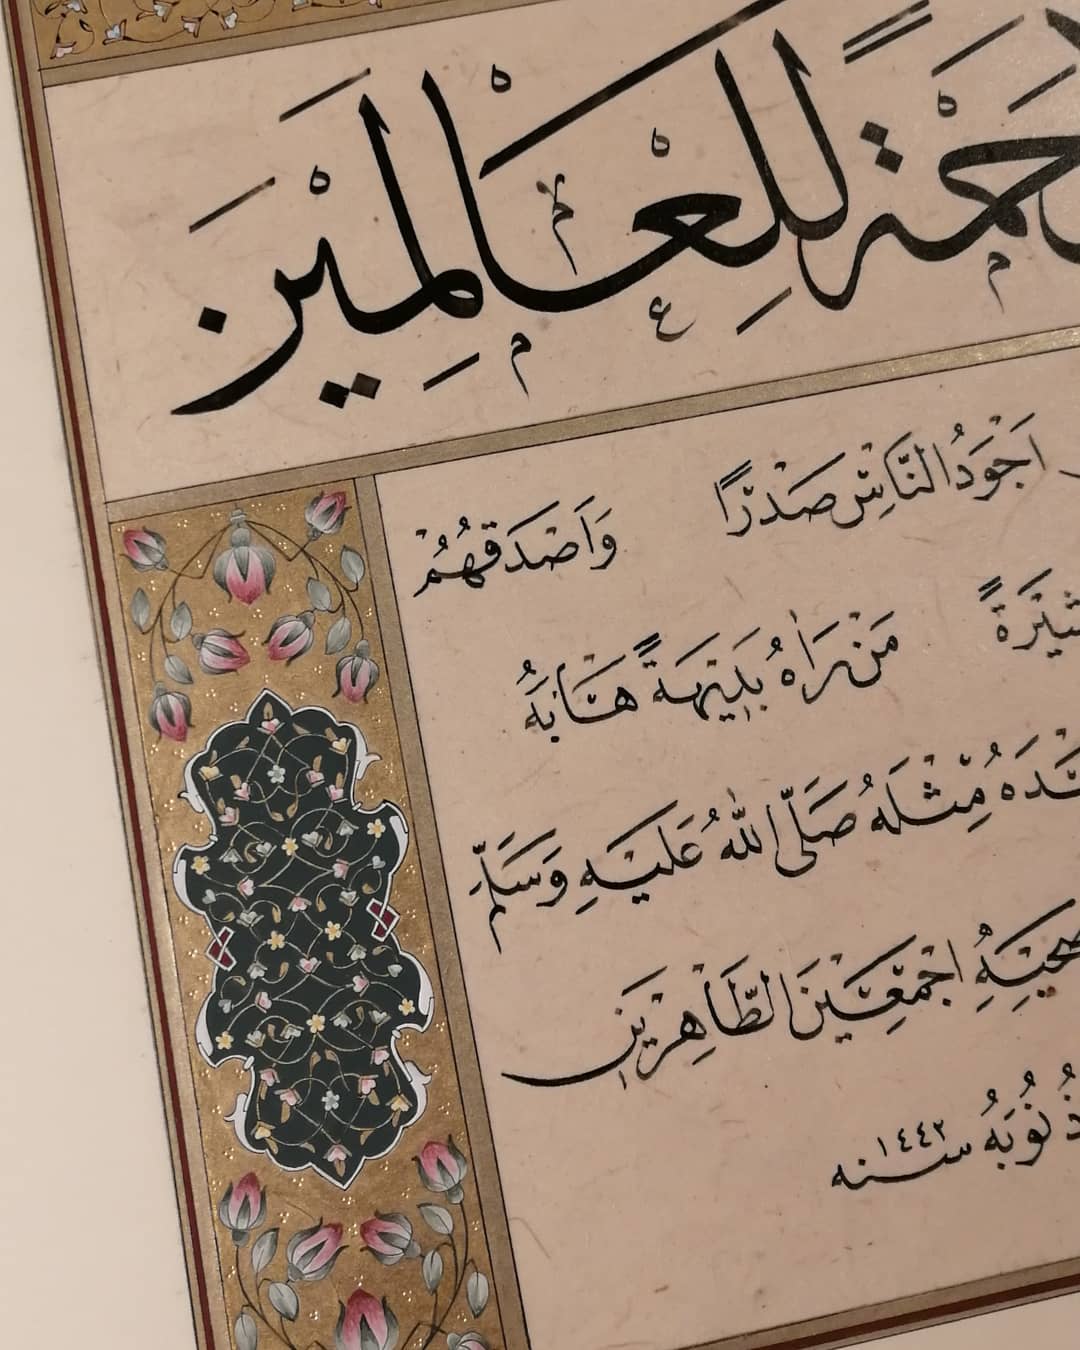 رَحْمَةً لِلْعَالَمِيْنَ
اَجْوَدُ النَّاسِ صَدْرًا وَاَصْدَقُهُمْ
مَنْ رَاٰهُ بَدِيْهَةً هَابَهُ
مِثْلَهُ صَلَّى اللّٰهُ عَلَيْهِ وَسَلَّمَ
اَجْمَعِيْنَ الطَّاهِرِيْنَ
ذُنُوبَهُ سنه ١٤٤٢